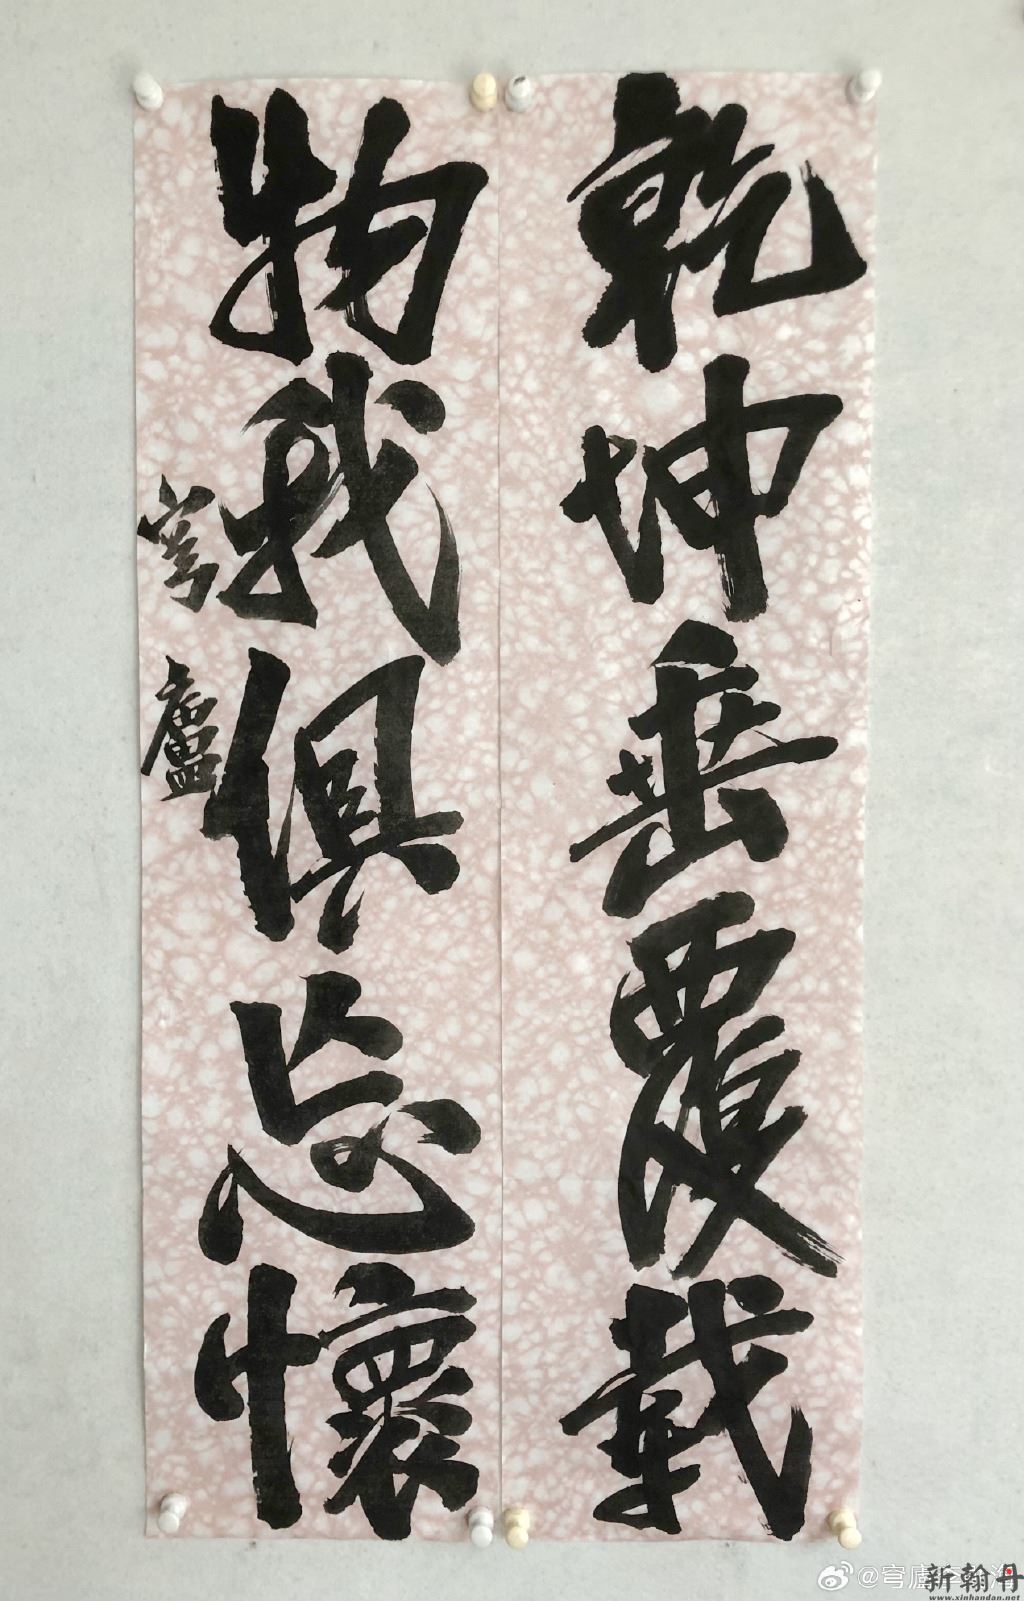 乾坤垂覆載
物我俱忘懷
穹廬
@穹廬
新翰丹
www.xinhandan.net